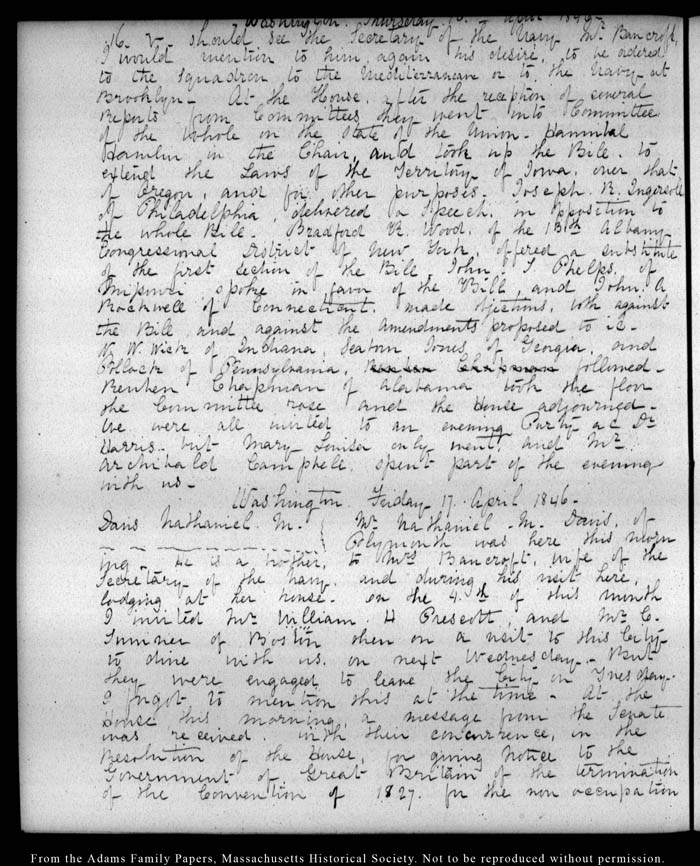 Washington. Thursday 16. April 1846.
16. V. should see the Secretary of the Navy Mr. Bancroft,
I would mention to him again his desire, to be ordered
to the Squadron, to the Mediterranean or to the Navy at
Brooklyn – At the House, after the reception of several
Reports from Committees they went into Committee
of the whole on the state of the Union. Hannibal
Hamlin in the Chair, and took up the Bill, to
extend the Laws of the Territory of Iowa, over that
of Oregon, and for other purposes. Joseph R. Ingersoll
of Philadelphia, delivered a Speech, in opposition to
the whole Bill – Bradford R. Wood, of the 13th Albany
Congressional District of New York, offered a substitute
of the first section of the Bill, John, S Phelps, of
Missouri spoke in favor of the Bill, and John. A
Rockwell of Connecticut. made objections, both against
the Bill and against the amendments proposed to it –
W. W. Wick of Indiana, Seaborn Jones, of Georgia, and
Pollock of Pennsylvania, Reuben Chapman followed –
Reuben Chapman of Alabama took the floor
the Committee rose and the House adjourned –
We were all invited to an evening Party at Dr
Harris – but Mary Louisa only went, and Mr.
Archibald Campbell. spent part of the evening
with us –
Washington Friday 17. April 1846 –
Davis Nathaniel. M. Mr. Nathaniel – M – Davis, of
Polymonth was here this morn
ing – He is a brother, to Mrs Bancroft, wife of the
Secretary of the navy, and during his visit here,
lodging at her house – On the 4.th of this month
I invited Mr. William. H Prescott, and Mr. C.
Sumner of Boston then on a visit to this City
to dine with us. on next Wednesday – But
they were engaged to leave the City on Tuesday.
I forgot to mention this at the time – At the
House this morning, a message from the Senate
was received. with their concurrence, in the
Resolution of the House, for giving notice to the
Government of Great Britain of the termination
of the Convention of 1827. for the non occupation
From the Adams Family Papers, Massachusetts Historical Society. Not to be reproduced without permission.